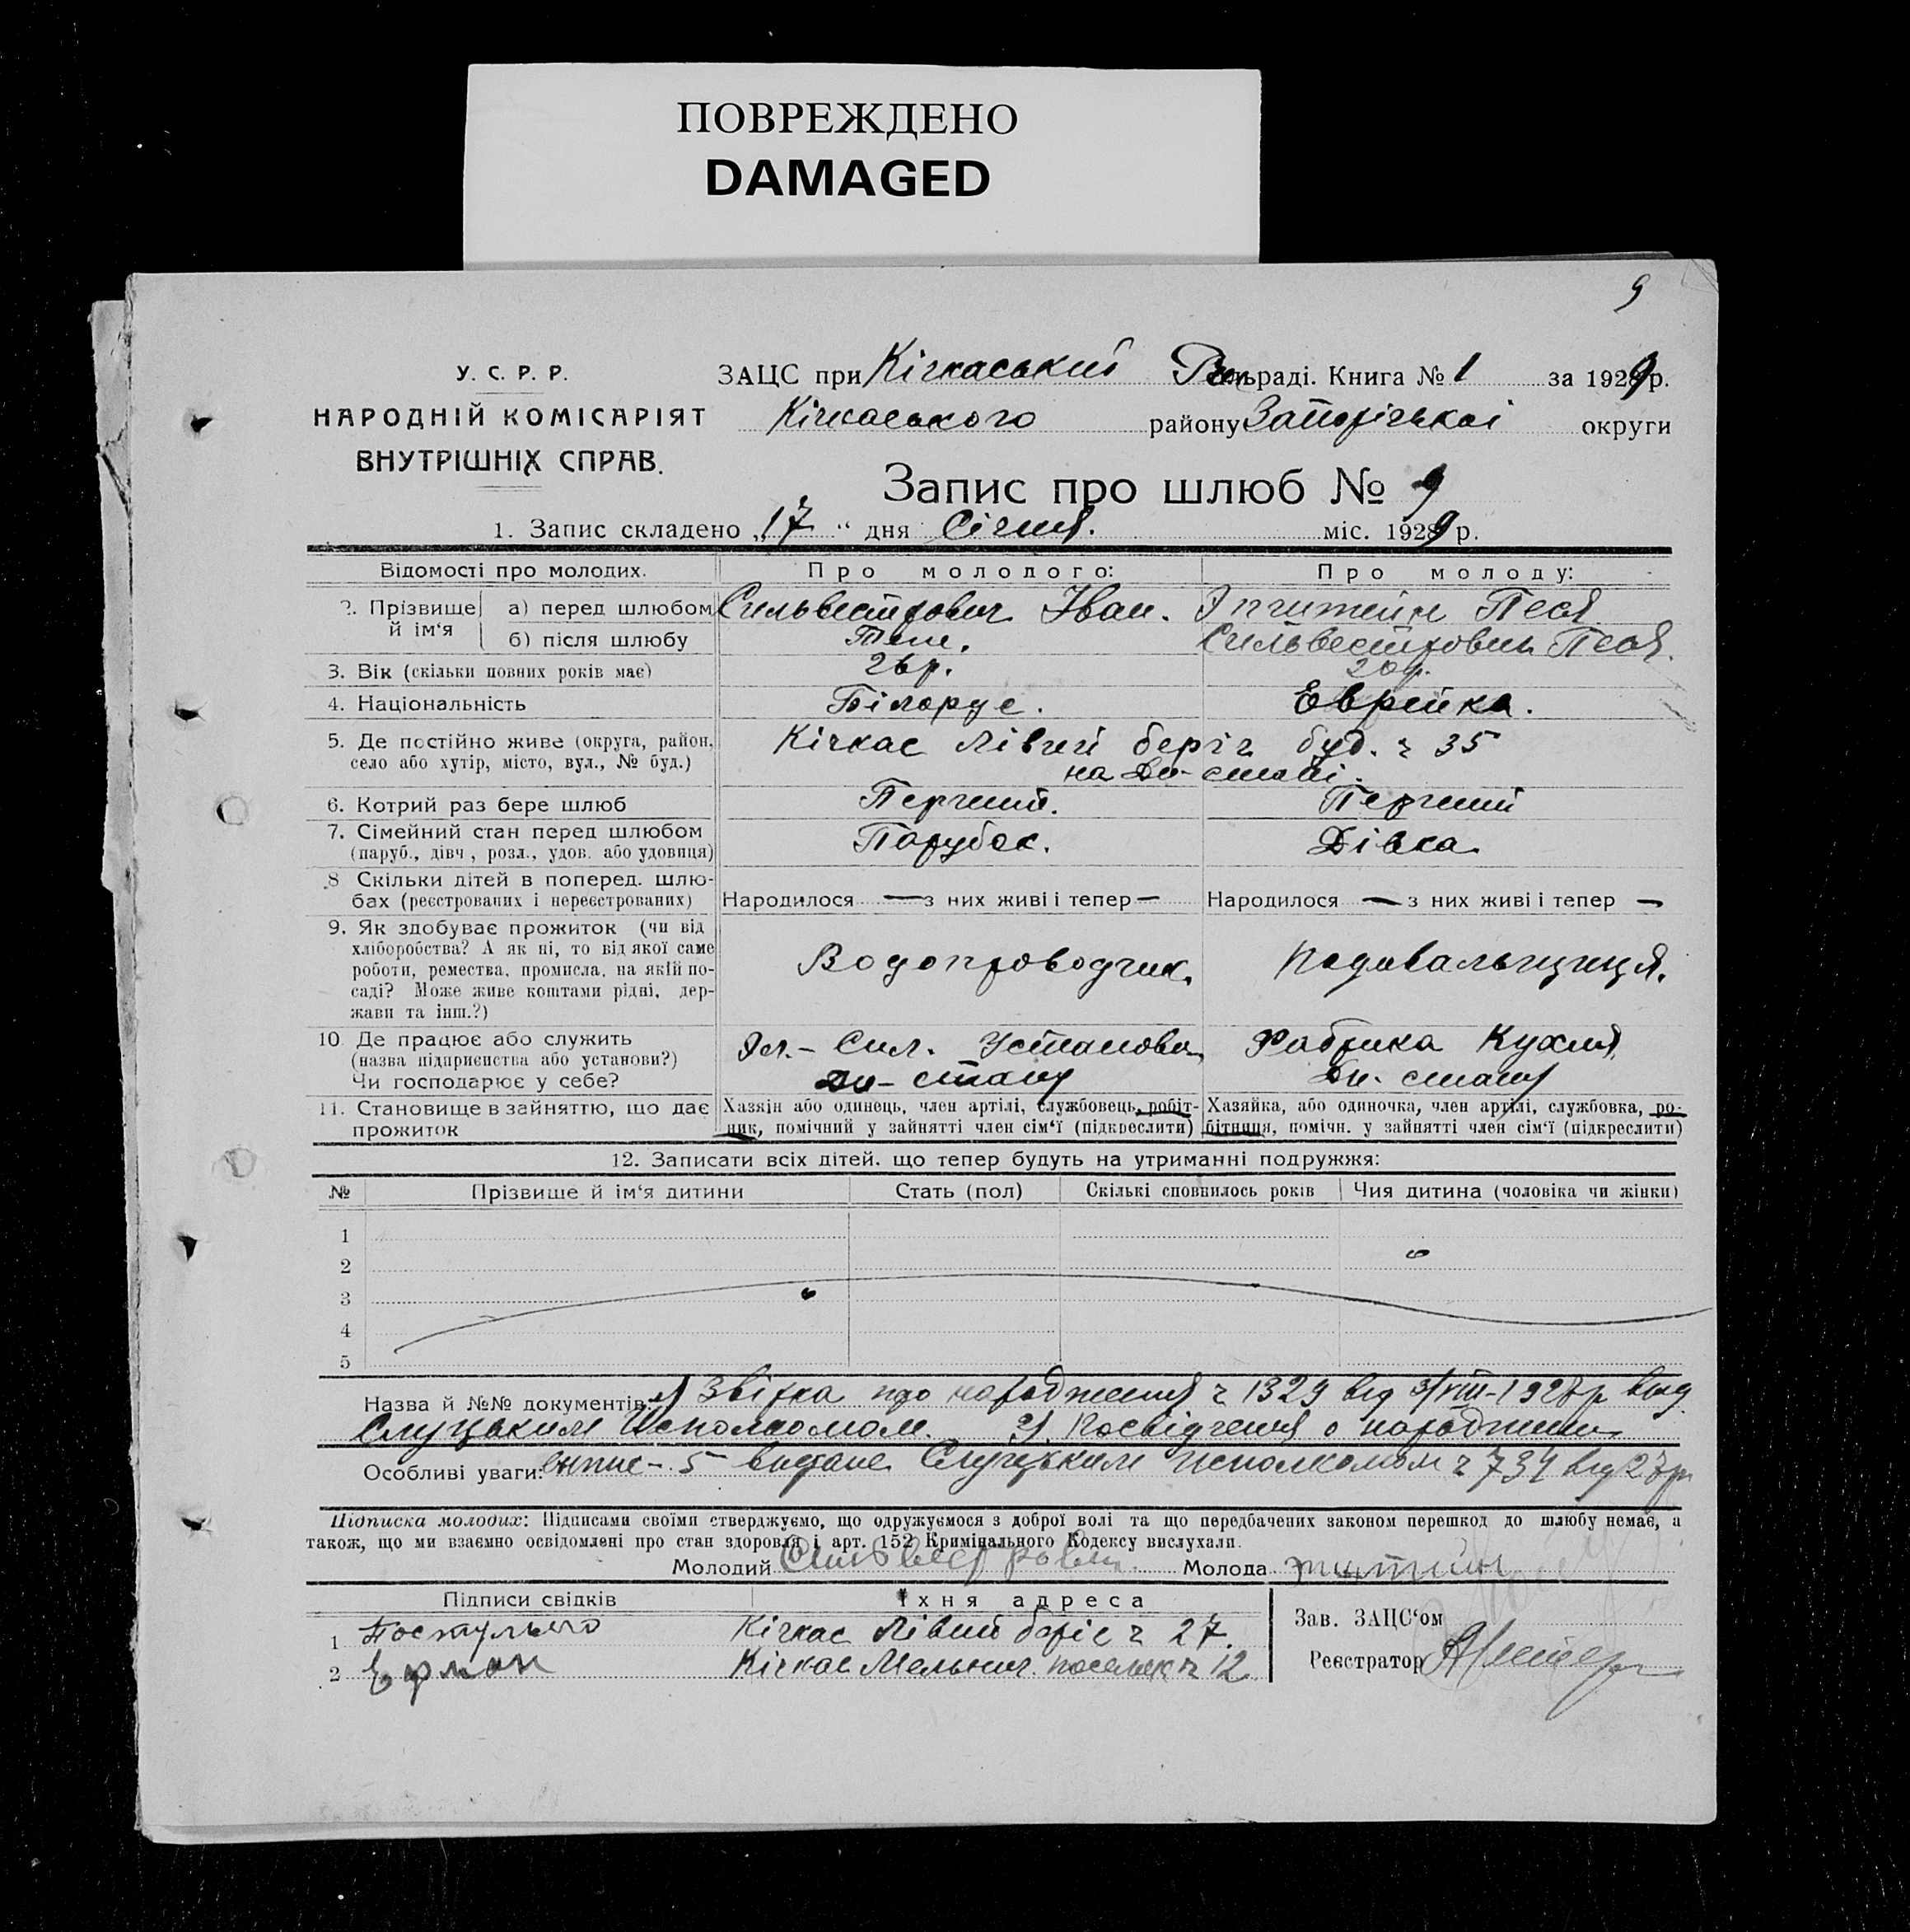 ПОВРЕЖДЕНО
DAMAGED
9
У. С. Р. Р.
НАРОДНІЙ КОМІСАРІЯТ
ВНУТРІШНІХ СПРАВ.
ЗАЦС при Кічкаський раді. Книга № 1 за 1929 р.
Кічкаського району Запорізької округи
Запис про шлюб № 9
1. Запис складено „17“ дня Січня. міс. 1929 р.
Відомості про молодих. Про молодого: Про молоду:
2. Прізвище й ім‘я а) перед шлюбом Сильвестрович Іван. Песя
б) після шлюбу Теж. Сильвестрович Песя.
3. Вік (скільки повних років має) 26 р. 20 р.
4. Національність Білорус. Еврейка.
5. Де постійно живе (округа, район, село або хутір, місто, вул., № буд.) Кічкас Лівий беріг буд. ч 35
на
6. Котрий раз бере шлюб Перший. Перший
7. Сімейний стан перед шлюбом Парубок. Дівка
(паруб., дівч., розл., удов. або удовиця)
8 Скільки дітей в поперед. шлю-
бах (реєстрованих і нереєстрованих) Народилося — з них живі і тепер — Народилося — з них живі і тепер —
9. Як здобуває прожиток (чи від
хліборобства? А як ні, то від якої саме
роботи, ремества, промисла, на якій по-
саді? Може живе коштами рідні, дер-
жави та інш.?) Водопроводчик. Подавальщиця.
10 Де працює або служить Ел.- Сил. Установка Фабрика Кухня
(назва підприємства або установи?)
Чи господарює у себе?
11. Становище в зайняттю, що дає
прожиток
Хазяїн або одинець, член артілі, службовець, робіт-
ник, помічний у зайнятті член сім‘ї (підкреслити)
Хазяйка, або одиночка, член артілі, службовка, ро-
бітниця, помічн. у зайнятті член сім‘ї (підкреслити)
12. Записати всіх дітей. що тепер будуть на утриманні подружжя:
№ Прізвище й ім‘я дитини Стать (пол) Скількі сповнилось років Чия дитина (чоловіка чи жінки)
1
2
3
4
5
Назва й №№ документів: 1) Звірка про народження ч 1329 від 3/VIII-1928 р вид
Слуцьким Исполкомом. 2) Посвідчення о
Особливі уваги: видане Слуцьким исполкомом ч 734 від
Підписка молодих: Підписами своїми стверджуємо, що одружуємося з доброї волі та що передбачених законом перешкод до шлюбу немає, а
також, що ми взаємно освідомлені про стан здоровля і арт. 152 Кримінального Кодексу вислухали.
Молодий Сильвестрович Молода
Підписи свідків Їхня адреса
1 Кічкас Лівий беріг ч 27.
2 Кічкас Мельнич. поселек ч 12
Зав. ЗАЦС‘ом
Реєстратор